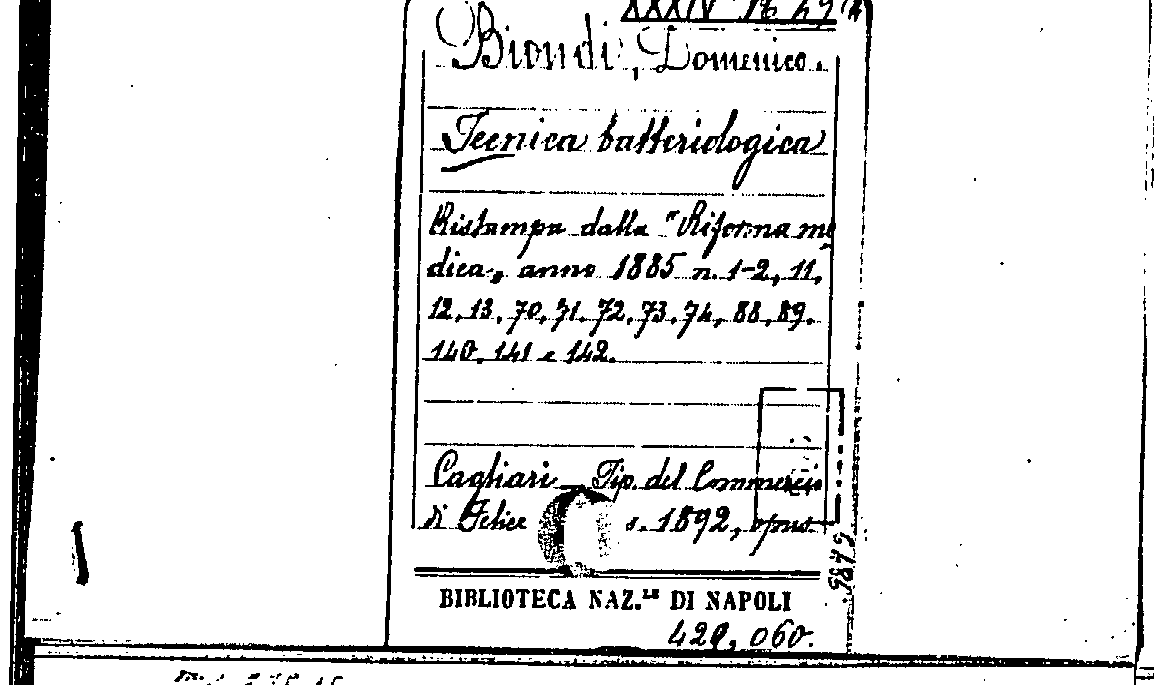 XXXIV
Biondi, Domenico.
Tecnica batteriologica
Ristampa dalla "Riforma me
dica„ anno 1885 n. 1-2, 11,
12, 13, 70, 71, 72, 73, 74, 88, 89.
140. 141 e 142.
Cagliari _ Tip. del Commercio
di Felice 1892, opus.
BIBLIOTECA NAZ.LE DI NAPOLI
429,060.